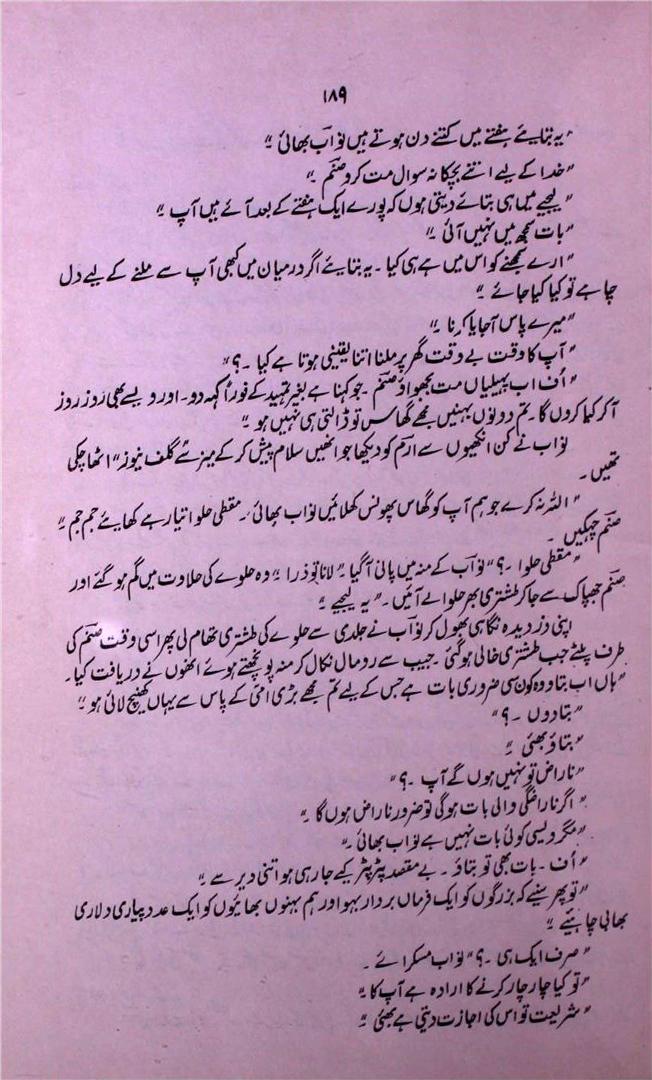 ۱۸۹
"یہ بتایئے ہفتے میں کتنے دن ہوتے ہیں نواب بھائی ۔"
"خدا کے لیے اتنے بچکانہ سوال مت کرو صنم ۔"
"لیجیے میں ہی بتائے دیتی ہوں کہ پورے ایک ہفتے کے بعد آئے ہیں آپ ۔"
"بات سمجھ میں نہیں آئی ۔"
"ارے سمجھنے کو اس میں ہے ہی کیا ۔ یہ بتایئے اگر درمیان میں کبھی آپ سے ملنے کے لیے دل
چاہے تو کیا کیا جائے ۔"
"میرے پاس آجایا کرنا ۔"
"آپ کا وقت بے وقت گھر پر ملنا اتنا یقینی ہوتا ہے کیا ۔؟"
"اُف اب پہیلیاں مت بجھواؤ صنم ۔ جو کہنا ہے بغیر تمہید کے فوراً کہہ دو ۔ اور ویسے بھی روز روز
آکر کیا کروں گا ۔ تم دونوں بہنیں مجھے گھاس تو ڈالتی ہی نہیں ہو ۔"
نواب نے کن انکھیوں سے ارم کو دیکھا جو انھیں سلام پیش کر کے میز سے "گلف نیوز" اٹھا چکی
تھیں ۔
"اللہ نہ کرے جو ہم آپ کو گھاس پھونس کھلائیں نواب بھائی ۔ مقطی حلوا تیار ہے کھایئے جم جم ۔"
صنم چہکیں ۔
"مقطی حلوا ۔؟" نواب کے منہ میں پانی آگیا ۔ "لانا تو ذرا ۔" وہ حلوے کی حلاوت میں گم ہو گئے اور
صنم جھپاک سے جاکر طشتری بھر حلوا لے آئیں ۔ "یہ لیجیے ۔"
اپنی دزدیدہ نگاہی بھول کر نواب نے جلدی سے حلوے کی طشتری تھام لی پھر اسی وقت صنم کی
طرف پلٹے جب طشتری خالی ہوگئی ۔ جیب سے رومال نکال کر منہ پونچھتے ہوئے انھوں نے دریافت کیا ۔
"ہاں اب بتاؤ وہ کون سی ضروری بات ہے جس کے لیے تم مجھے بڑی امی کے پاس سے یہاں کھینچ لائی ہو ۔"
"بتادوں ۔؟"
"بتاؤ بھئی ۔"
"ناراض تو نہیں ہوں گے آپ ۔؟"
"اگر ناراضگی والی بات ہوگی تو ضرور ناراض ہوں گا ۔"
"مگر ویسی کوئی بات نہیں ہے نواب بھائی ۔"
"اُف ۔ بات بھی تو بتاؤ ۔ بے مقصد پٹر پٹر کیے جا رہی ہو اتنی دیر سے ۔"
"تو پھر سنیے کہ بزرگوں کو ایک فرماں بردار بہو اور ہم بہنوں بھائیوں کو ایک عدد پیاری دلاری
بھابی چاہیئے ۔"
"صرف ایک ہی ۔؟" نواب مسکرائے ۔
"تو کیا چار چار کرنے کا ارادہ ہے آپ کا ۔"
"شریعت تو اس کی اجازت دیتی ہے بھئی ۔"